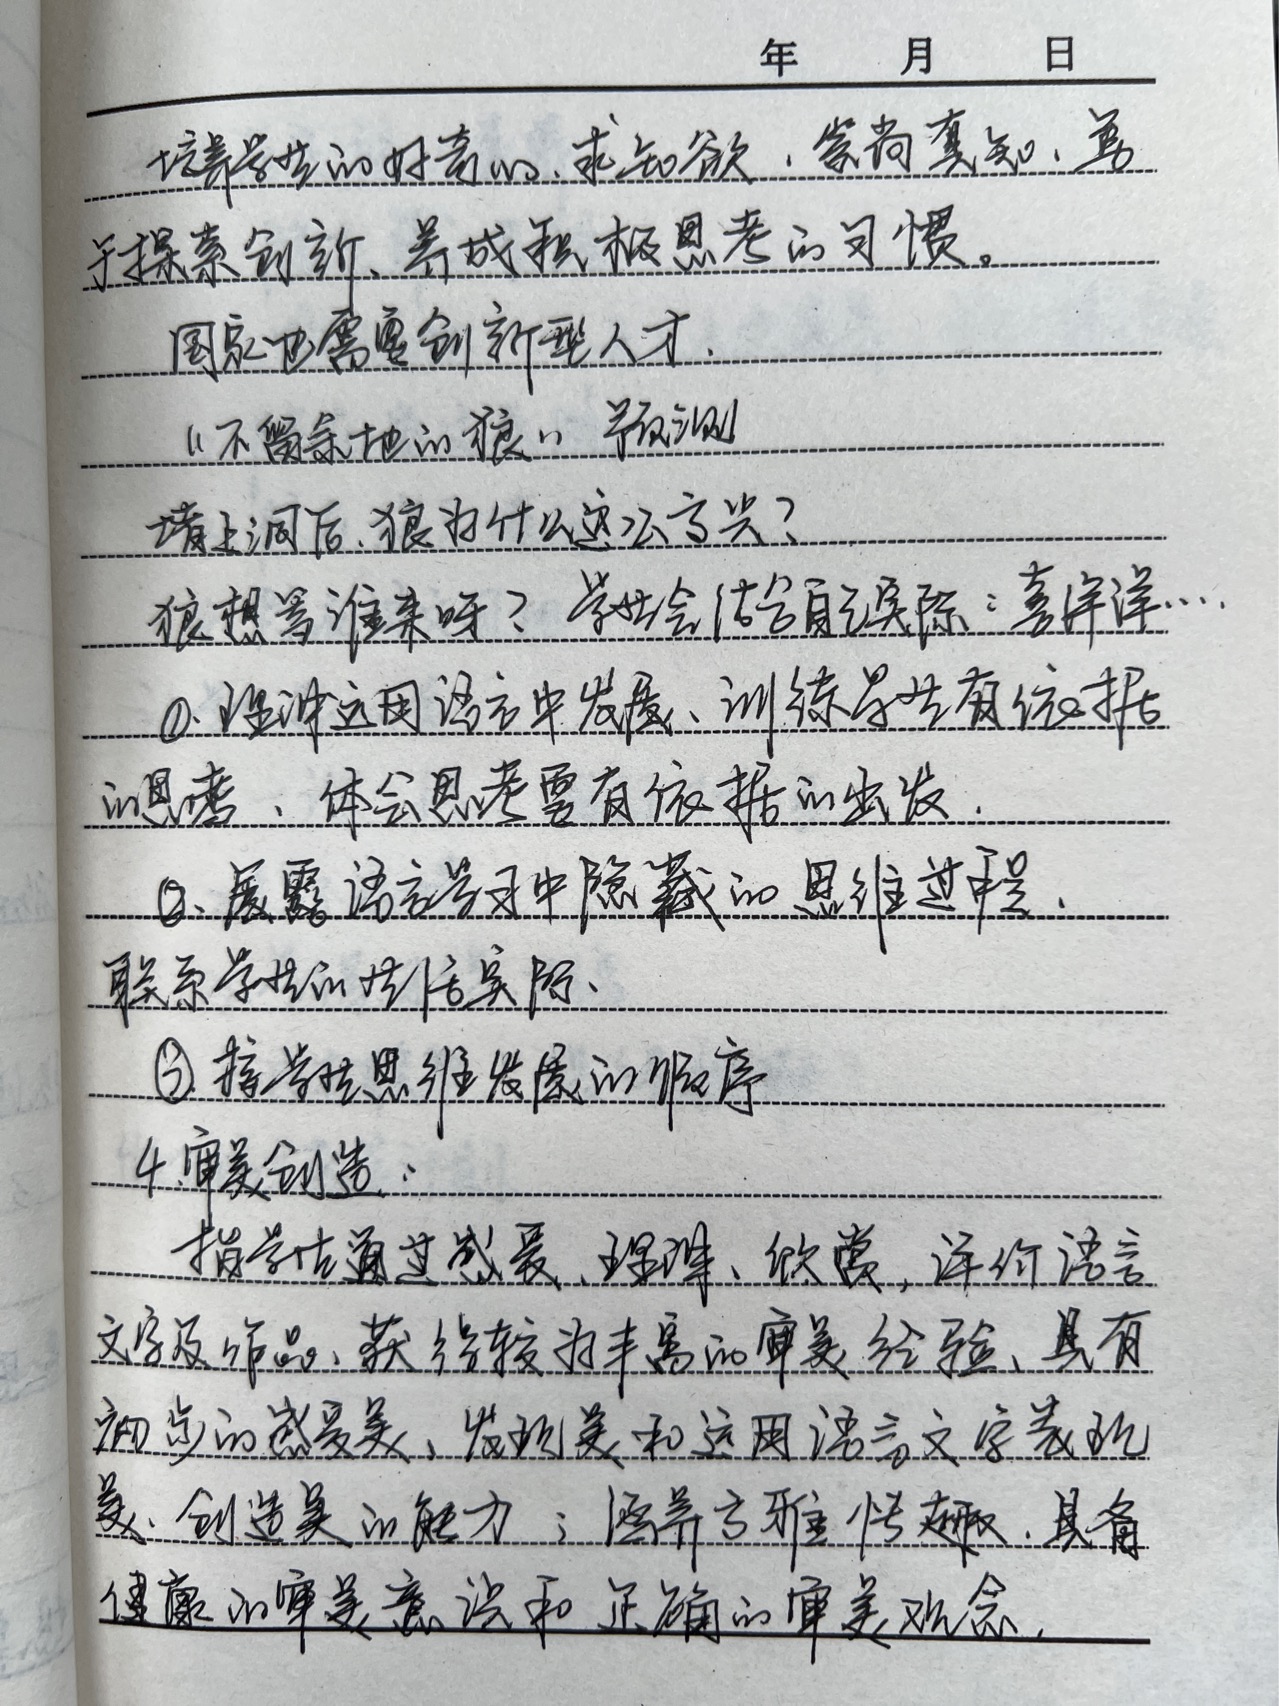 年 月 日
培养学生的好奇心、求知欲，崇尚真知、勇
于探索创新、养成积极思考的习惯。
国家也需要创新型人才.
“不留余地的狼” 预测
堵上洞后、狼为什么这么高兴？
狼想等谁来呀？学生会结合自己实际：喜洋洋....
①、理解运用语言中发展、训练学生有依据
的思考、体会思考要有依据的出发.
②、展露语言学习中隐藏的思维过程.
联系学生的生活实际、
③.按学生思维发展的顺序
4.审美创造：
指学生通过感受、理解、欣赏，评价语言
文字及作品、获得较为丰富的审美经验、具有
初步的感受美、发现美和运用语言文字表现
美、创造美的能力；涵养高雅情趣、具备
健康的审美意识和正确的审美观念.